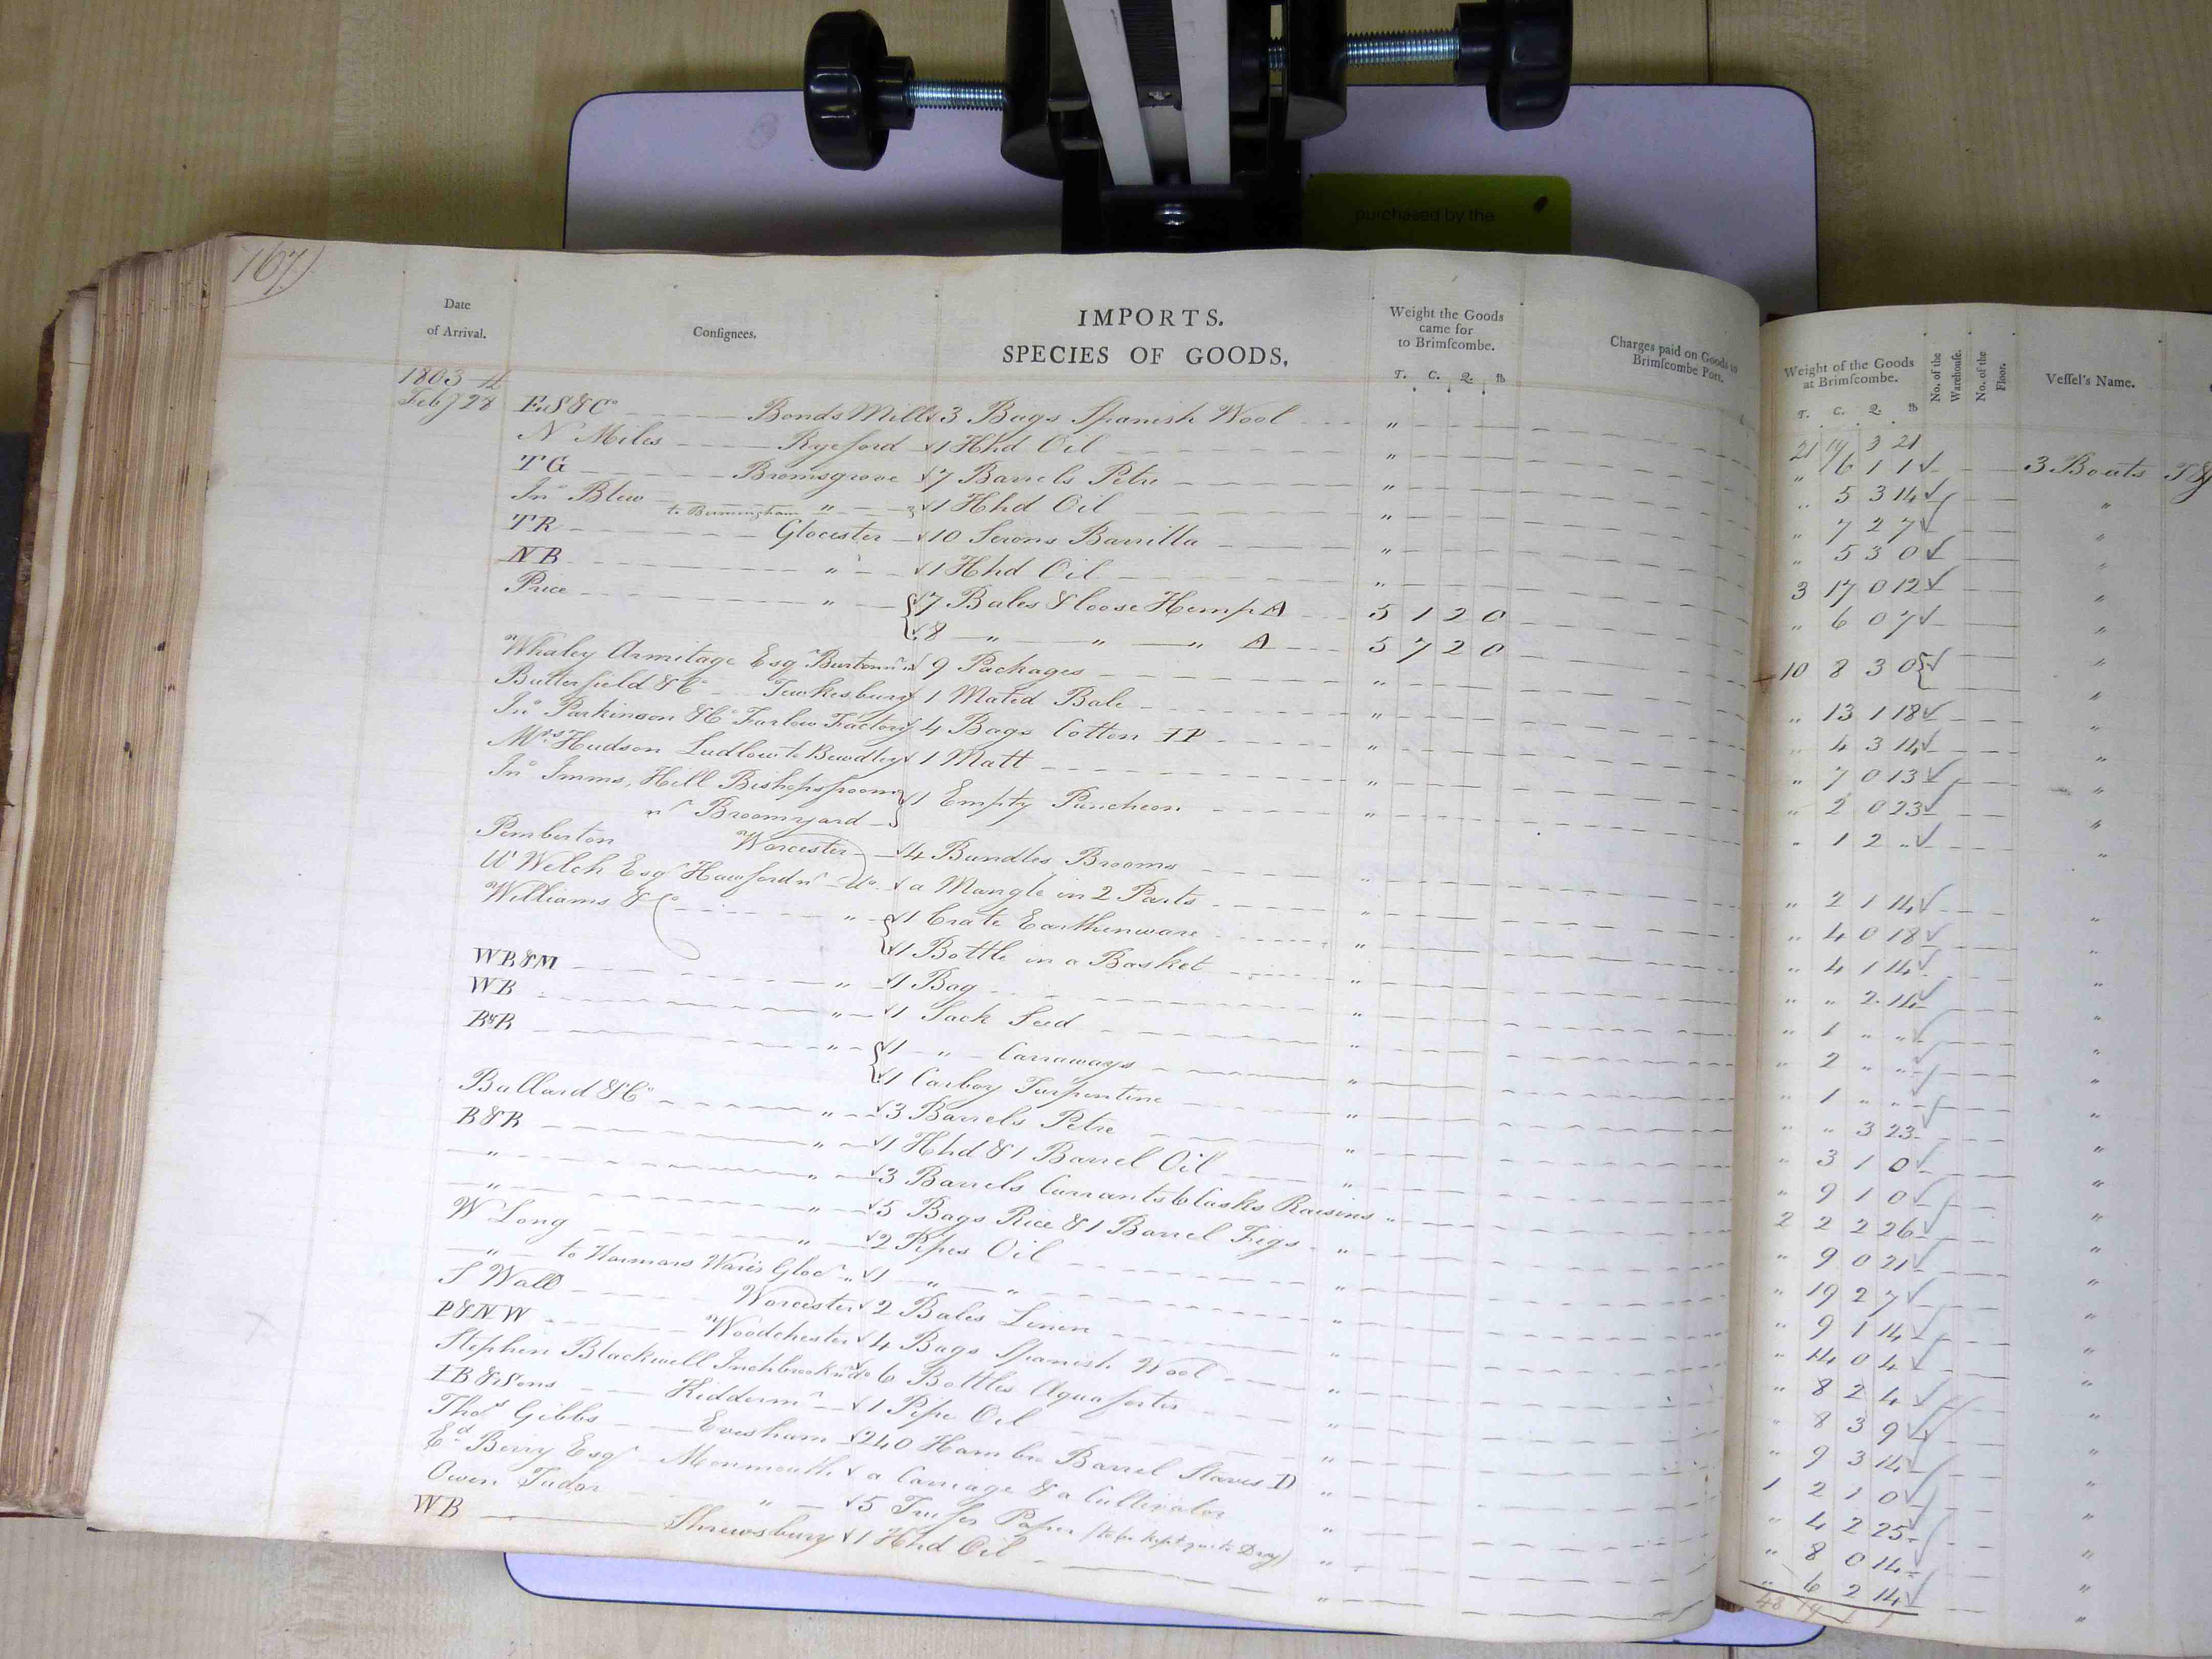 purchased by the
167
Date of Arrival.
Consignees.
IMPORTS.
SPECIES OF GOODS.
Weight the Goods came for to Brimscombe.
T. C. Q. lb
Charges paid on Goods to Brimscombe Port.
Weight of the Goods at Brimscombe.
T. C. Q. lb
No. of the Warehouse.
No. of the Floor.
Vessel's Name.
1803
21 19 3 21
Feby 28 ES&Co Bonds Mill 3 Bags Spanish Wool " " 6 1 1 3 Boats
N Miles Ryeford 1 Hhd Oil " " 5 3 14 "
TG Bromsgrove 7 Barrels Petre " " 7 2 7 "
Jno Blew to Birmingham " 1 Hhd Oil " " 5 3 0 "
TR Glocester 10 Serons Barrilla " 3 17 0 12 "
NB " 1 Hhd Oil " " 6 0 7 "
Price " 7 Bales & loose Hemp A 5 1 2 0
8 " " " A 5 7 2 0 10 8 3 0 "
Whaley Armitage Esqr 9 Packages " " 13 1 18 "
Butterfield & Co Tewkesbury 1 Mated Bale " " 4 3 14 "
Jno Parkinson & Co Farlow Factory 4 Bags Cotton IP " " 7 0 13 "
Mrs Hudson Ludlow to Bewdley 1 Matt " " 2 0 23 "
Jno Imms, Hill Bishopsfroom nr Broomyard 1 Empty Puncheon " " 1 2 " "
Pemberton Worcester 4 Bundles Brooms " " 2 1 14 "
W Welch Esqr Hawford nr Do. a Mangle in 2 Parts " " 4 0 18 "
Williams & Co " 1 Crate Earthenware " " 4 1 14 "
1 Bottle in a Basket " " 2 14
WB&M " 1 Bag " " 1 " " "
WB " 1 Sack Seed " " 2 " " "
B&B " 1 " Carraways " 1 " "
1 Carboy Turpentine " " " 3 23 "
Ballard & Co " 3 Barrels Petre " " 3 1 0 "
B&B " 1 Hhd & 1 Barrel Oil " " 9 1 0 "
" " 3 Barrels Currants 6 Casks Raisins " 2 2 2 26 "
" " 5 Bags Rice & 1 Barrel Figs " " 9 0 21 "
W Long " 2 Pipes Oil " " 19 2 7 "
" to 1 " " " " 9 1 14 "
S Wall Worcester 2 Bales Linen " " 14 0 4 "
P&NW Woodchester 4 Bags Spanish Wool " " 8 2 4 "
Stephen Blackwell Inchbrook nr do 6 Bottles Aquafortis " " 8 3 9 "
IB&Sons Kiddermr 1 Pipe Oil " " 9 3 14 "
Thos Gibbs Evesham 240 Hambro Barrel Staves D " 1 2 1 0 "
Ed Berry Esqr Monmouth a Carriage & a Cultivator " " 4 2 25 "
Owen Tudor " 5 Paper (to be kept quite Dry) " " 8 0 14 "
WB Shrewsbury 1 Hhd Oil " " 6 2 14 "
48 19